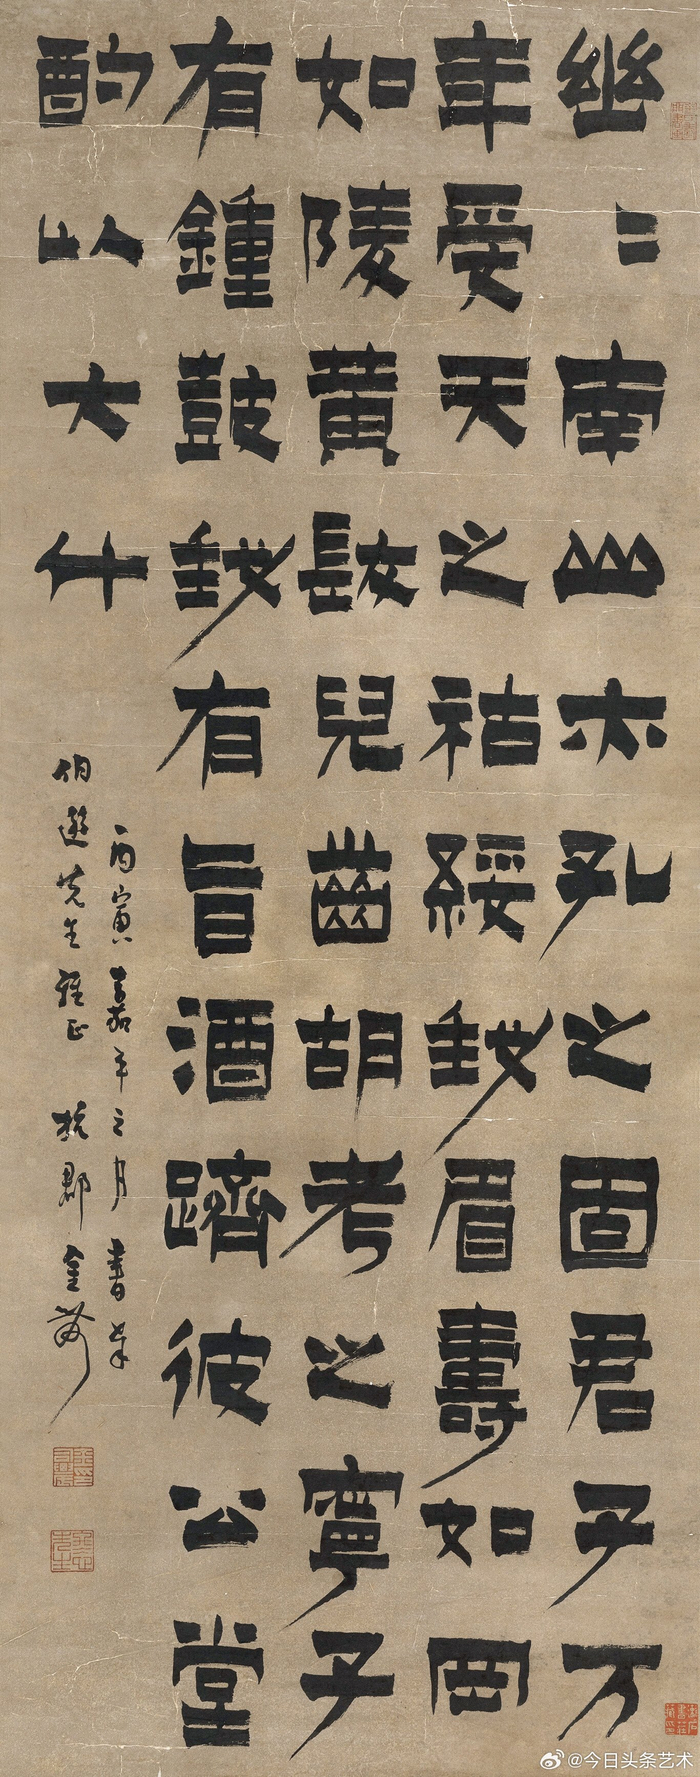 幽〻南山亦孔之固君子万
年受天之祜綏我眉壽如岡
如陵黃髮兒齒胡考之寧子
有鍾鼓我有旨酒躋彼公堂
酌以大斗
丙寅嘉平之月書奉
伯先生雅正 杭郡金農
@今日头条艺术